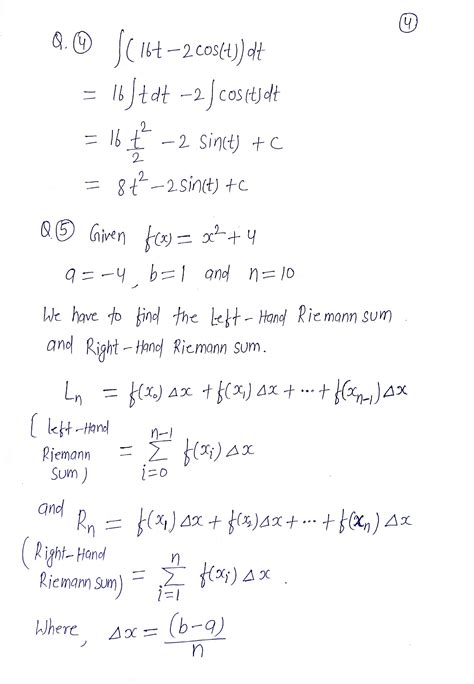 ④
Q. ④ ∫(16t - 2cos(t))dt
= 16∫tdt - 2∫cos(t)dt
= 16 t²/2 - 2 sin(t) + c
= 8t² - 2sin(t) + c
Q. ⑤ Given f(x) = x² + 4
a = -4, b = 1 and n = 10
We have to find the Left-Hand Riemann sum
and Right-Hand Riemann sum.
Lₙ = f(x₀) Δx + f(x₁) Δx + ... + f(xₙ₋₁) Δx
(Left-Hand Riemann Sum) = ∑_{i=0}^{n-1} f(xᵢ) Δx
and Rₙ = f(x₁) Δx + f(x₂) Δx + ... + f(xₙ) Δx
(Right-Hand Riemann sum) = ∑_{i=1}^{n} f(xᵢ) Δx .
Where, Δx = (b-a)/n